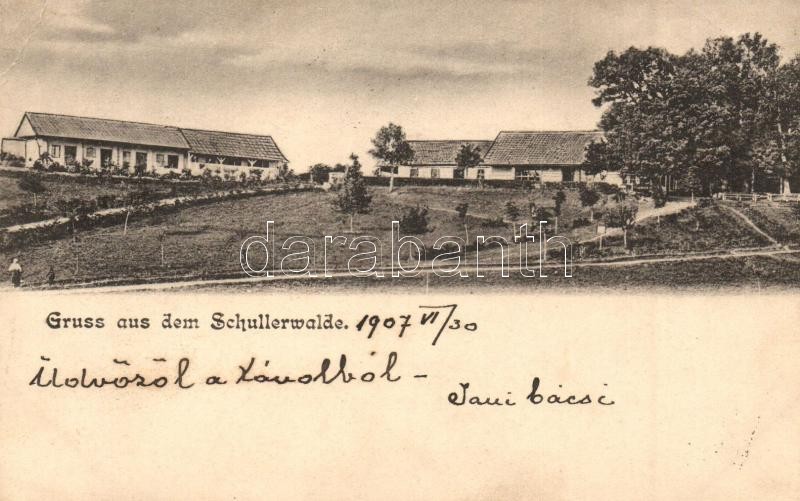 darabanth
Gruss aus dem Schullerwalde. 1907 VI/30
Üdvözöl a távolból –
Jani bácsi